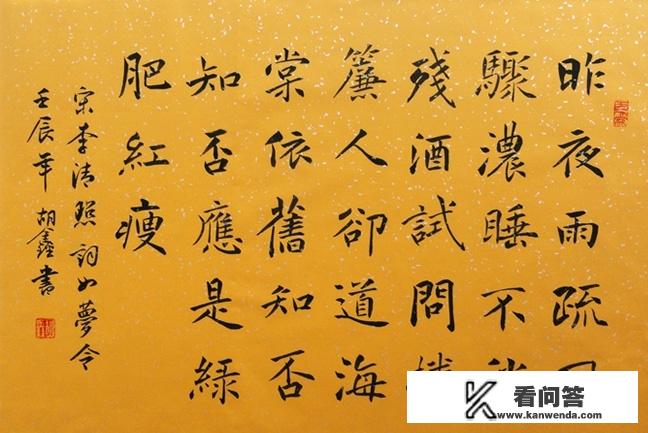 昨夜雨疏
驟濃睡不
殘酒試問
簾人卻道海
棠依舊知否
知否應是綠
肥紅瘦
宋李清照詞如夢令
壬辰年 胡鑫書
看问答
www.kanwenda.com